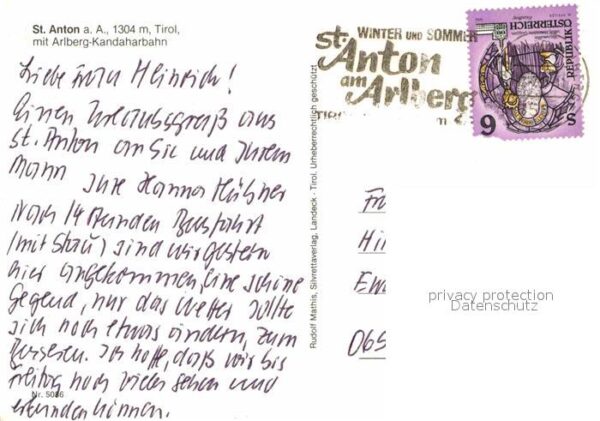 St. Anton a. A., 1304 m, Tirol,
mit Arlberg-Kandaharbahn
Liebe Frau Heinrich!
Einen Urlaubsgruß aus
St. Anton an Sie und Ihrem
Mann
Ihre Hanna Hübner
Nach 14 Stunden Busfahrt
(mit Stau) sind wir gestern
hier angekommen, eine schöne
Gegend, nur das Wetter sollte
sich noch etwas ändern, zum
Besseren. Ich hoffe, daß wir bis
Freitag noch vieles sehen und
erkunden können.
Nr. 5086
Rudolf Mathis, Silvrettaverlag, Landeck - Tirol. Urheberrechtlich geschützt
WINTER UND SOMMER
St. Anton
am
Arlberg
REPUBLIK
ÖSTERREICH
S 6
Fr
Hi
Ew
069
privacy protection
Datenschutz